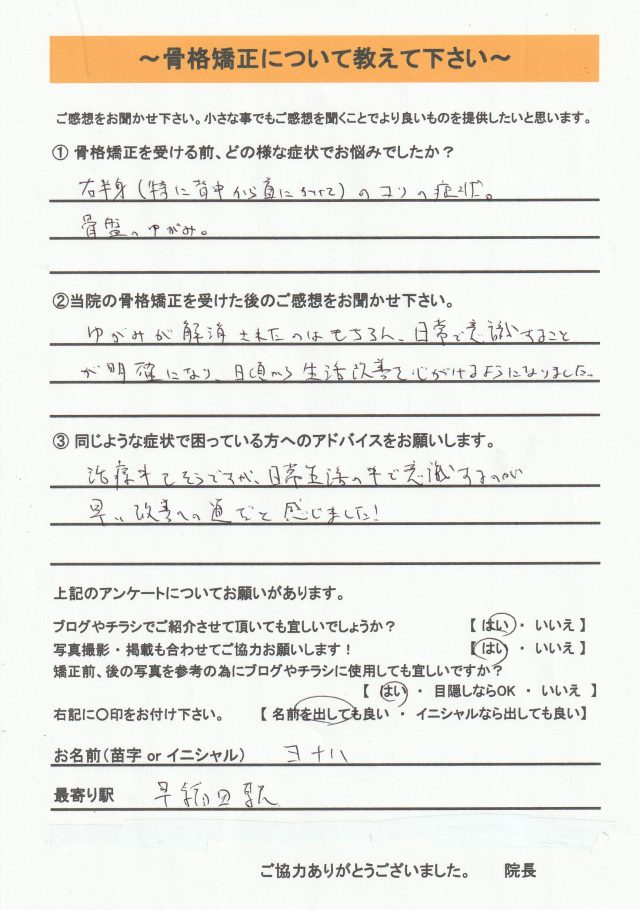 ～骨格矯正について教えて下さい～
ご感想をお聞かせ下さい。小さな事でもご感想を聞くことでより良いものを提供したいと思います。
① 骨格矯正を受ける前、どの様な症状でお悩みでしたか？
右半身（特に背中から肩にかけて）のコリの症状。
骨盤のゆがみ。
②当院の骨格矯正を受けた後のご感想をお聞かせ下さい。
ゆがみが解消されたのはもちろん、日常で意識すること
が明確になり、日頃から生活改善を心がけるようになりました。
③ 同じような症状で困っている方へのアドバイスをお願いします。
治療もそうですが、日常生活の中で意識するのが
早い改善への道だと感じました！
上記のアンケートについてお願いがあります。
ブログやチラシでご紹介させて頂いても宜しいでしょうか？ 【 はい ・ いいえ 】
写真撮影・掲載も合わせてご協力お願いします！ 【 はい ・ いいえ 】
矯正前、後の写真を参考の為にブログやチラシに使用しても宜しいですか？
【 はい ・ 目隠しならOK ・ いいえ 】
右記に〇印をお付け下さい。 【 名前を出しても良い ・ イニシャルなら出しても良い】
お名前（苗字 or イニシャル） ヨナハ
最寄り駅 早稲田駅
ご協力ありがとうございました。 院長